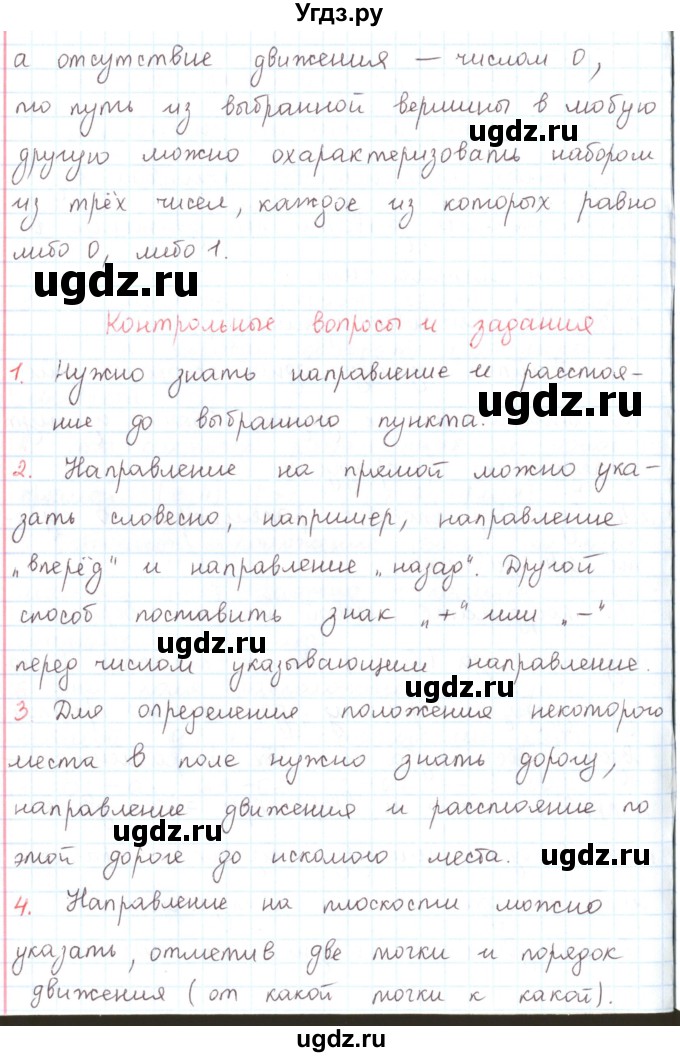 Угдз.ру
а отсутствие движения – числом 0,
то путь из выбранной вершины в любую
ugdz.ru
другую можно охарактеризовать набором
из трёх чисел, каждое из которых равно
либо 0, либо 1.
ugdz.ru
Контрольные вопросы и задания
1. Нужно знать направление и расстоя-
ugdz.ru
ние до выбранного пункта.
2. Направление на прямой можно ука-
зать словесно, например, направление
„вперёд“ и направление „назад“. Другой
способ поставить знак „+“ или „–“
ugdz.ru
перед числом указывающим направление.
ugdz.ru
3. Для определения положения некоторого
места в поле нужно знать дорогу,
направление движения и расстояние по
ugdz.ru
этой дороге до искомого места.
ugdz.ru
4. Направление на плоскости можно
указать, отметив две точки и порядок
движения (от какой точки к какой).
ugdz.ru